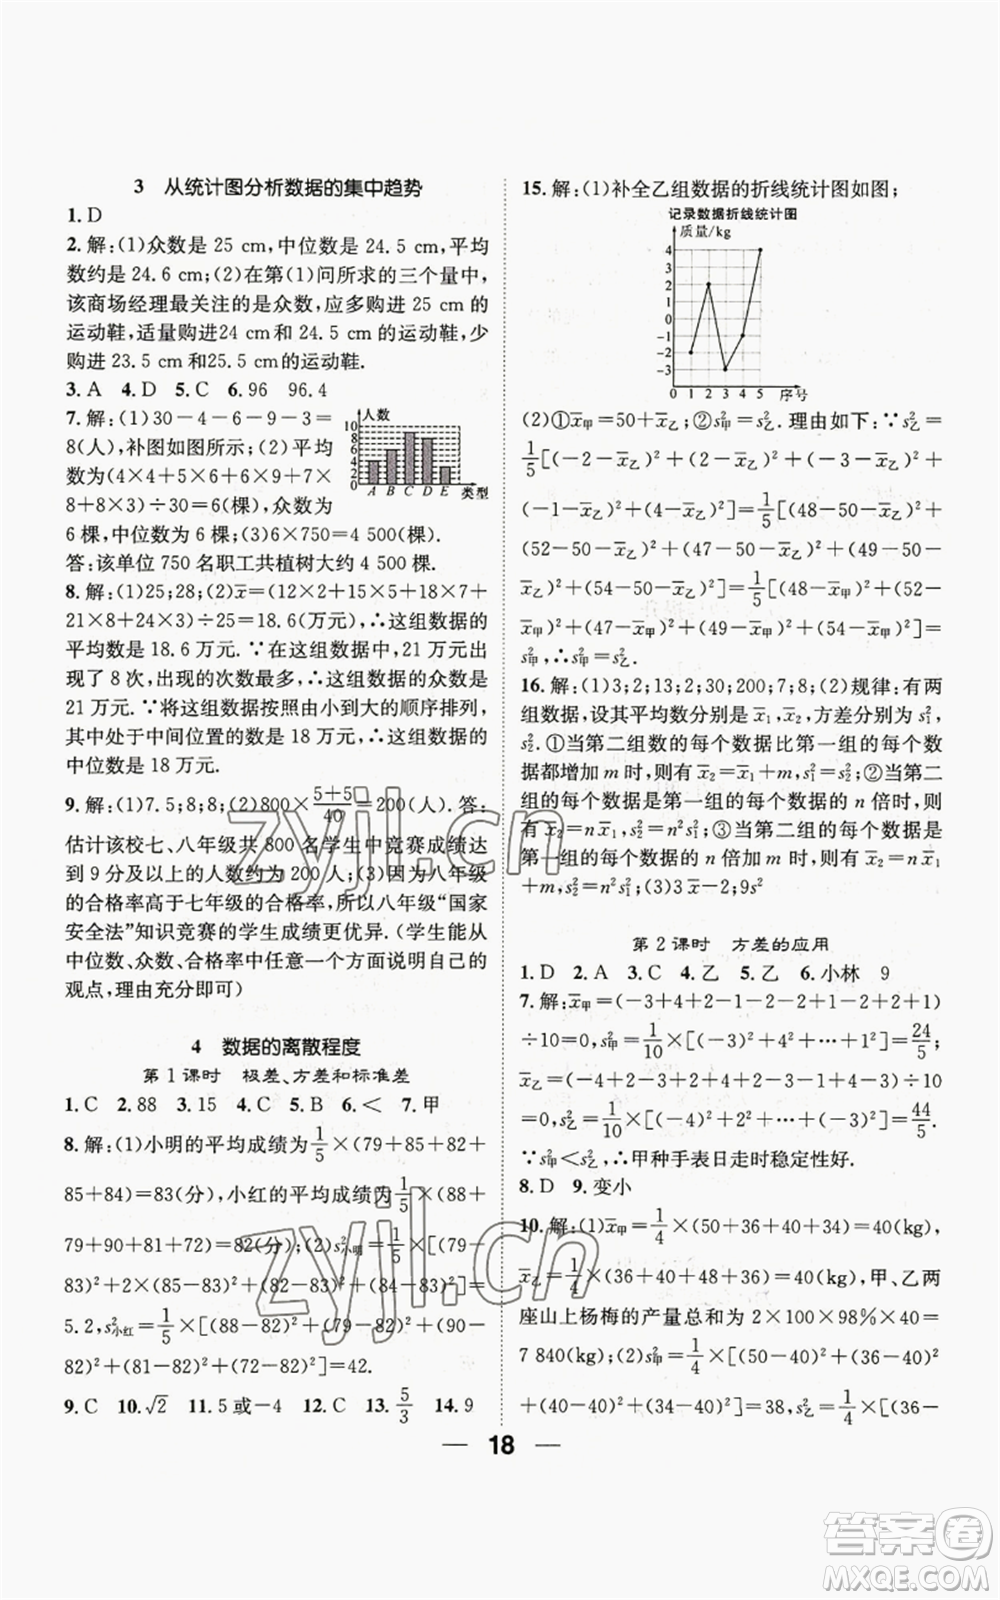 3 从统计图分析数据的集中趋势
1. D
2. 解:(1)众数是 25 cm,中位数是 24.5 cm,平均
数约是 24.6 cm;(2)在第(1)问所求的三个量中,
该商场经理最关注的是众数,应多购进 25 cm 的
运动鞋,适量购进24 cm 和 24.5 cm 的运动鞋,少
购进 23.5 cm 和25.5 cm 的运动鞋.
3. A 4. D 5. C 6. 96 96.4
7. 解:(1)30-4-6-9-3=
8(人),补图如图所示;(2)平均
数为(4×4+5×6+6×9+7×
8+8×3)÷30=6(棵),众数为
6 棵,中位数为 6 棵;(3)6×750=4 500(棵).
答:该单位 750 名职工共植树大约 4 500 棵.
人数
10
8
6
4
2
0
A B C D E 类型
8. 解:(1)25;28;(2)x̄=(12×2+15×5+18×7+
21×8+24×3)÷25=18.6(万元),∴这组数据的
平均数是 18.6 万元.∵在这组数据中,21 万元出
现了 8 次,出现的次数最多,∴这组数据的众数是
21 万元.∵将这组数据按照由小到大的顺序排列,
其中处于中间位置的数是 18 万元,∴这组数据的
中位数是 18 万元.
9. 解:(1)7.5;8;8;(2)800×(5+5)/40=200(人). 答:
估计该校七、八年级共 800 名学生中竞赛成绩达
到 9 分及以上的人数约为 200 人;(3)因为八年级
的合格率高于七年级的合格率,所以八年级“国家
安全法”知识竞赛的学生成绩更优异.(学生能从
中位数、众数、合格率中任意一个方面说明自己的
观点,理由充分即可)
4 数据的离散程度
第 1 课时 极差、方差和标准差
1. C 2. 88 3. 15 4. C 5. B 6. < 7. 甲
8. 解:(1)小明的平均成绩为1/5×(79+85+82+
85+84)=83(分),小红的平均成绩为1/5×(88+
79+90+81+72)=82(分);(2)s²小明=1/5×[(79-
83)²+2×(85-83)²+(82-83)²+(84-83)²]=
5.2,s²小红=1/5×[(88-82)²+(79-82)²+(90-
82)²+(81-82)²+(72-82)²]=42.
9. C 10. √2 11. 5 或-4 12. C 13. 5/3 14. 9
15. 解:(1)补全乙组数据的折线统计图如图;
记录数据折线统计图
质量/kg
4
3
2
1
0
-1
-2
-3
0 1 2 3 4 5 序号
(2)①x̄甲=50+x̄乙;②s²甲=s²乙. 理由如下:∵s²乙=
1/5[(-2-x̄乙)²+(2-x̄乙)²+(-3-x̄乙)²+
(-1-x̄乙)²+(4-x̄乙)²]=1/5[(48-50-x̄乙)²+
(52-50-x̄乙)²+(47-50-x̄乙)²+(49-50-
x̄乙)²+(54-50-x̄乙)²]=1/5[(48-x̄甲)²+(52-
x̄甲)²+(47-x̄甲)²+(49-x̄甲)²+(54-x̄甲)²]=
s²甲,∴s²甲=s²乙.
16. 解:(1)3;2;13;2;30;200;7;8;(2)规律:有两
组数据,设其平均数分别是x̄₁,x̄₂,方差分别为 s₁²,
s₂².①当第二组数的每个数据比第一组的每个数
据都增加 m 时,则有x̄₂=x̄₁+m,s₂²=s₁²;②当第二
组的每个数据是第一组的每个数据的 n 倍时,则
有x̄₂=nx̄₁,s₂²=n²s₁²;③当第二组的每个数据是
第一组的每个数据的 n 倍加 m 时,则有x̄₂=nx̄₁
+m,s₂²=n²s₁²;(3)3x̄-2;9s²
第 2 课时 方差的应用
1. D 2. A 3. C 4. 乙 5. 乙 6. 小林 9
7. 解:x̄甲=(-3+4+2-1-2-2+1-2+2+1)
÷10=0,s²甲=1/10×[(-3)²+4²+…+1²]=24/5,
x̄乙=(-4+1-2+1+4+1-2-1-2+4)÷10
=0,s²乙=1/10×[(-4)²+1²+…+4²]=44/5.
∵s²甲<s²乙,∴甲种手表日走时稳定性好.
8. D 9. 变小
10. 解:(1)x̄甲=1/4×(50+36+40+34)=40(kg),
x̄乙=1/4×(36+40+48+36)=40(kg),甲、乙两
座山上杨梅的产量总和为 2×100×98%×40=
7 840(kg);(2)s²甲=1/4×[(50-40)²+(36-40)²
+(40-40)²+(34-40)²]=38,s²乙=1/4×[(36-
18
zyjl.cn
zyjl.cn
答案卷
MXQE.COM